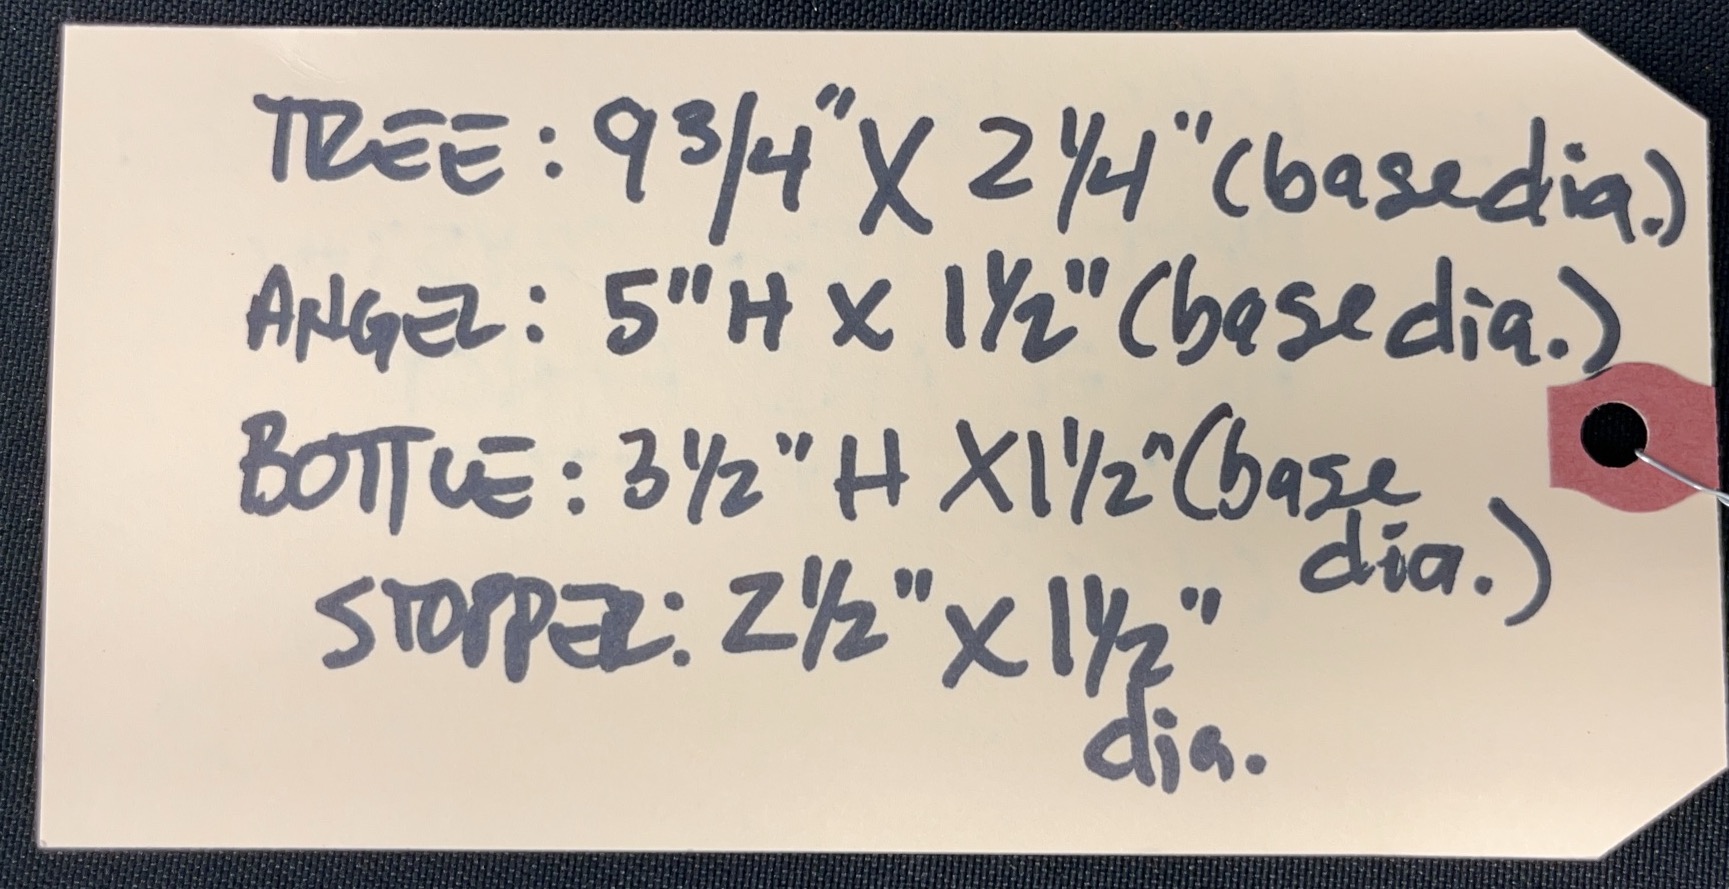 TREE: 9 3/4" X 2 1/4" (base dia.)
ANGEL: 5" H X 1 1/2" (base dia.)
BOTTLE: 3 1/2" H X 1 1/2" (base
dia.)
STOPPER: 2 1/2" X 1 1/2"
dia.